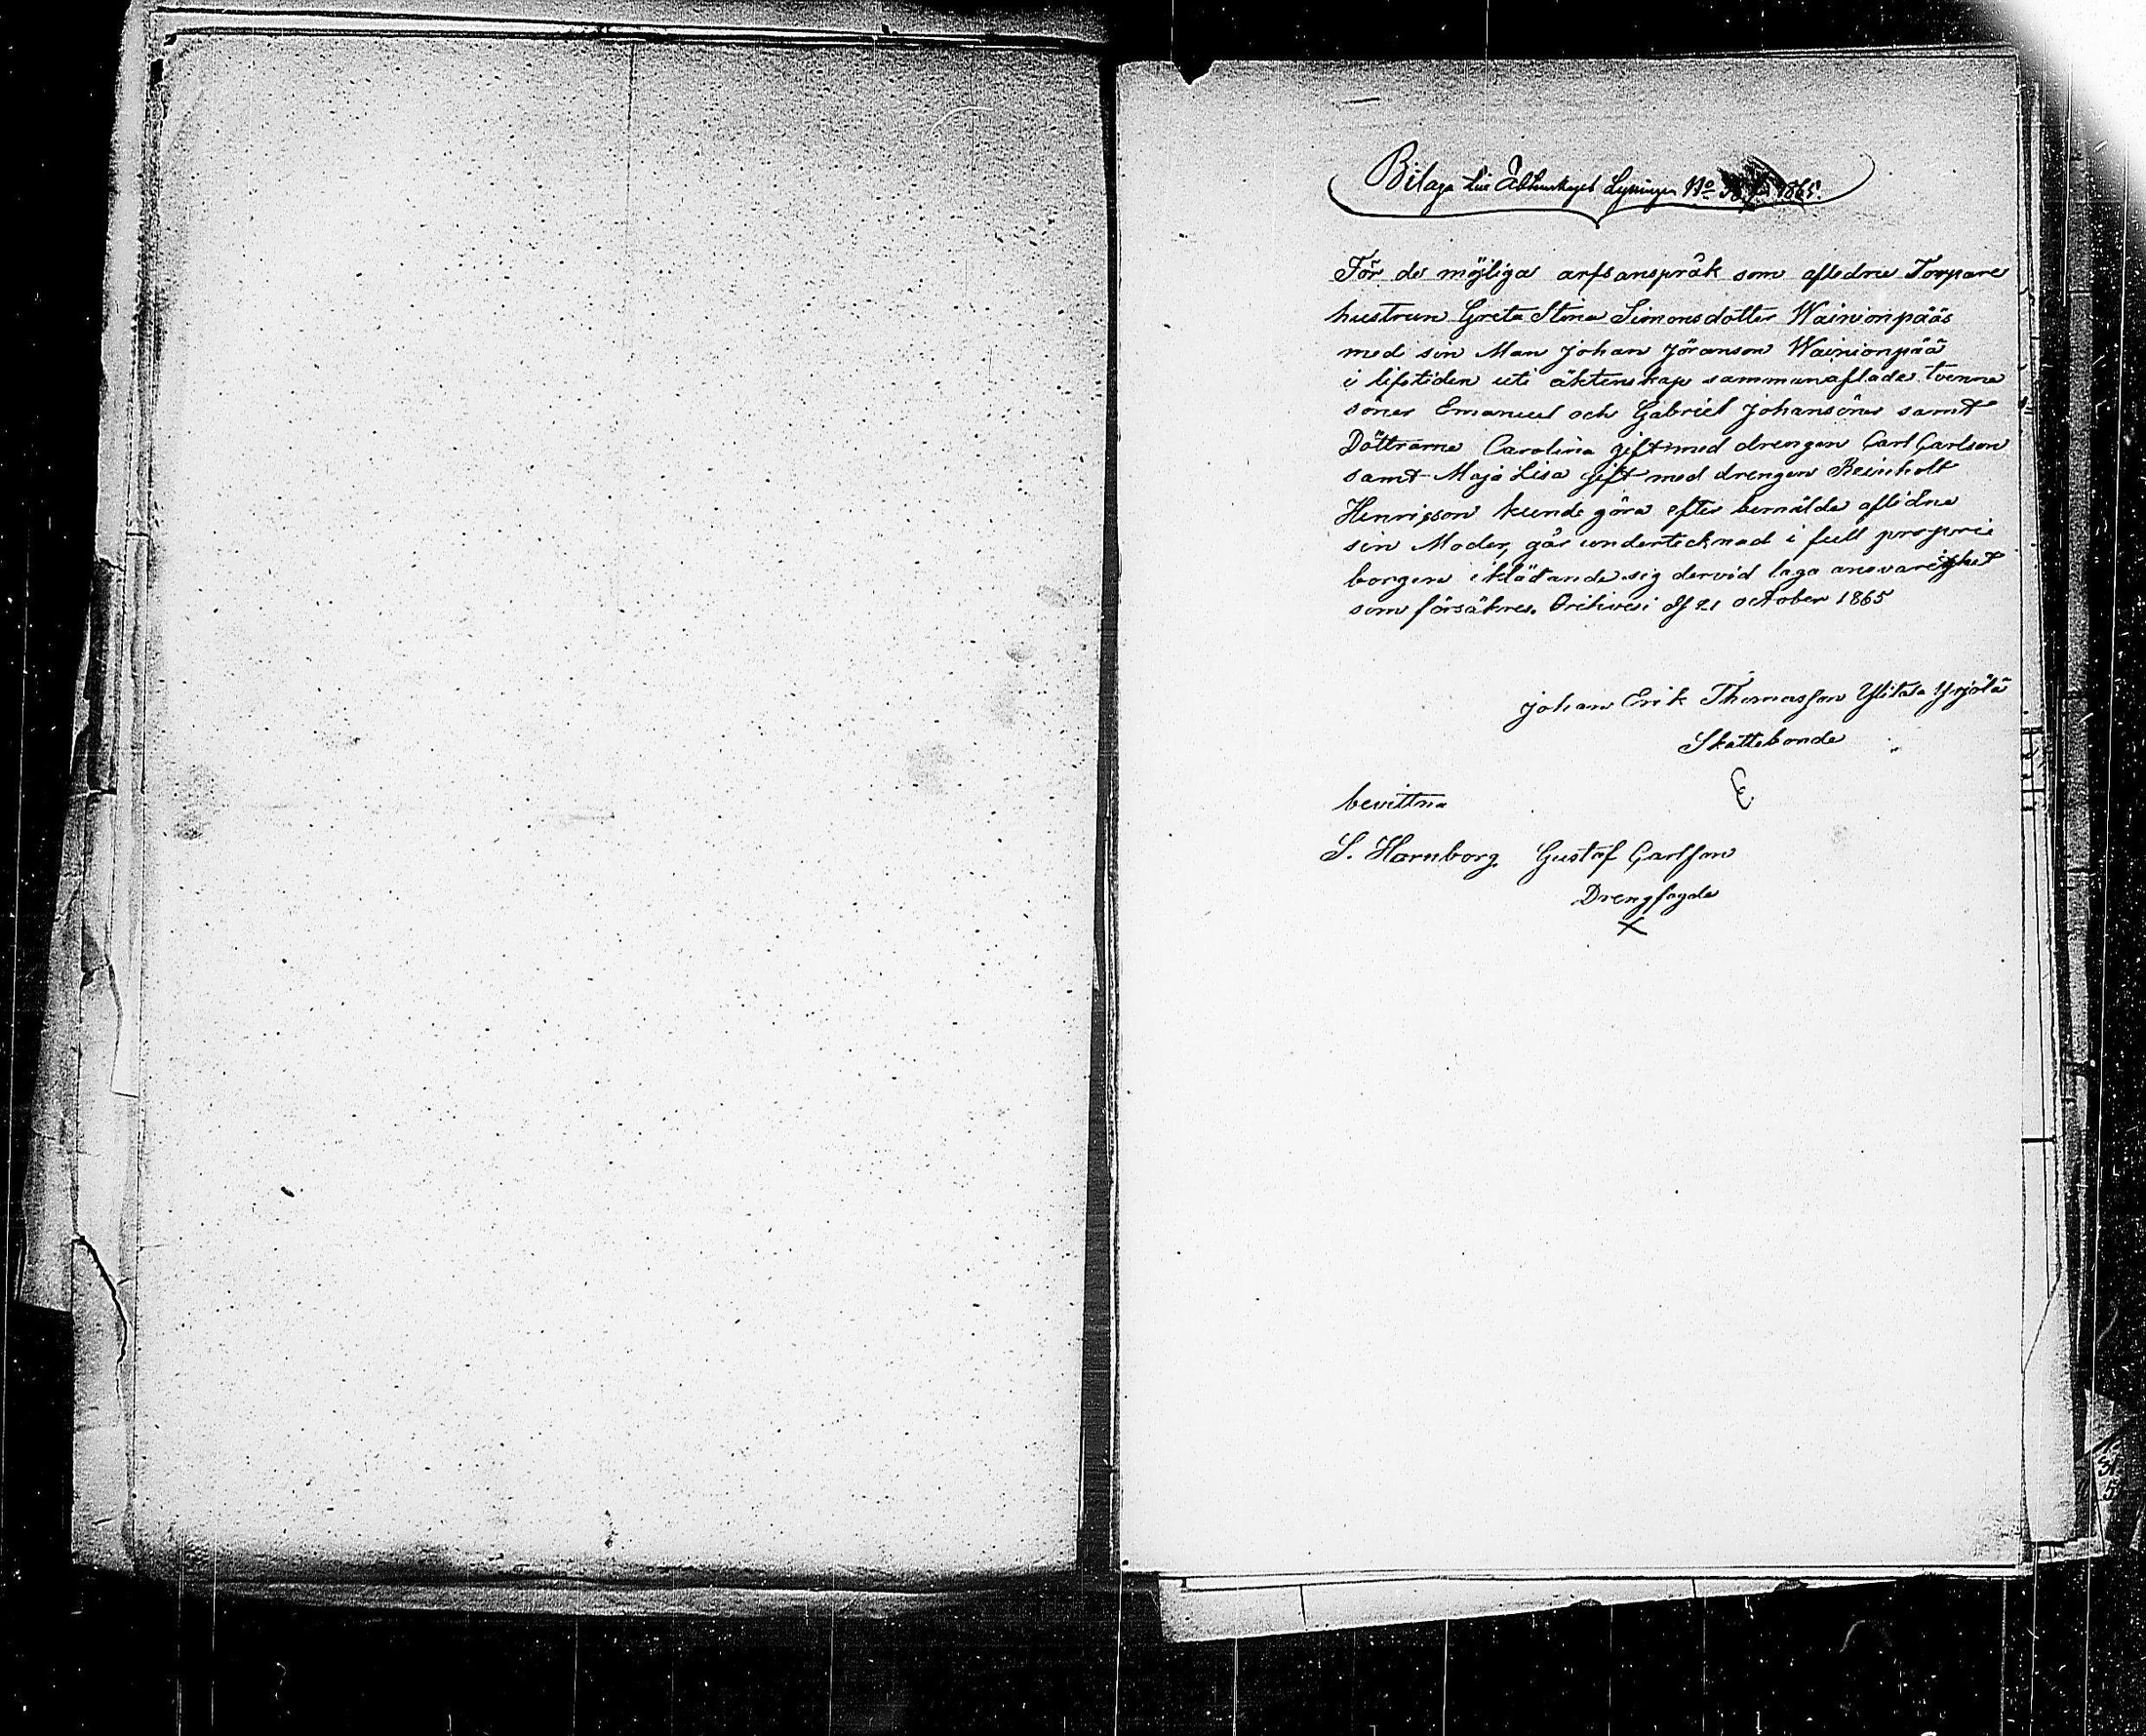 Bilaga till Äktenskapet Lysningen No 1865.
För de möjliga arfsanspråk som aflidne Torpare
hustrun Greta Stina Simonsdotter Wainionpääs
med sin Man Johan Jöranson Wainionpää
i lifstiden uti äktenskap sammanaflade tvenne
söner Emanuel och Gabriel Johansöner samt
Döttrarne Carolina gift med drengen Carl Carlson
samt Maja Lisa gift med drengen Reinholt
Henricson kunde göra efter bemälde aflidne
sin Moder, går undertecknad i full proprie
borgen iklädande sig dervid laga answarighet
som försäkras. Orihvesi df 21 october 1865
Johan Erik Thomasson Ylitalo Yrjölä
Skattebonde
bevittna
S. Hornborg Gustaf Carlson
Drengfogde
X